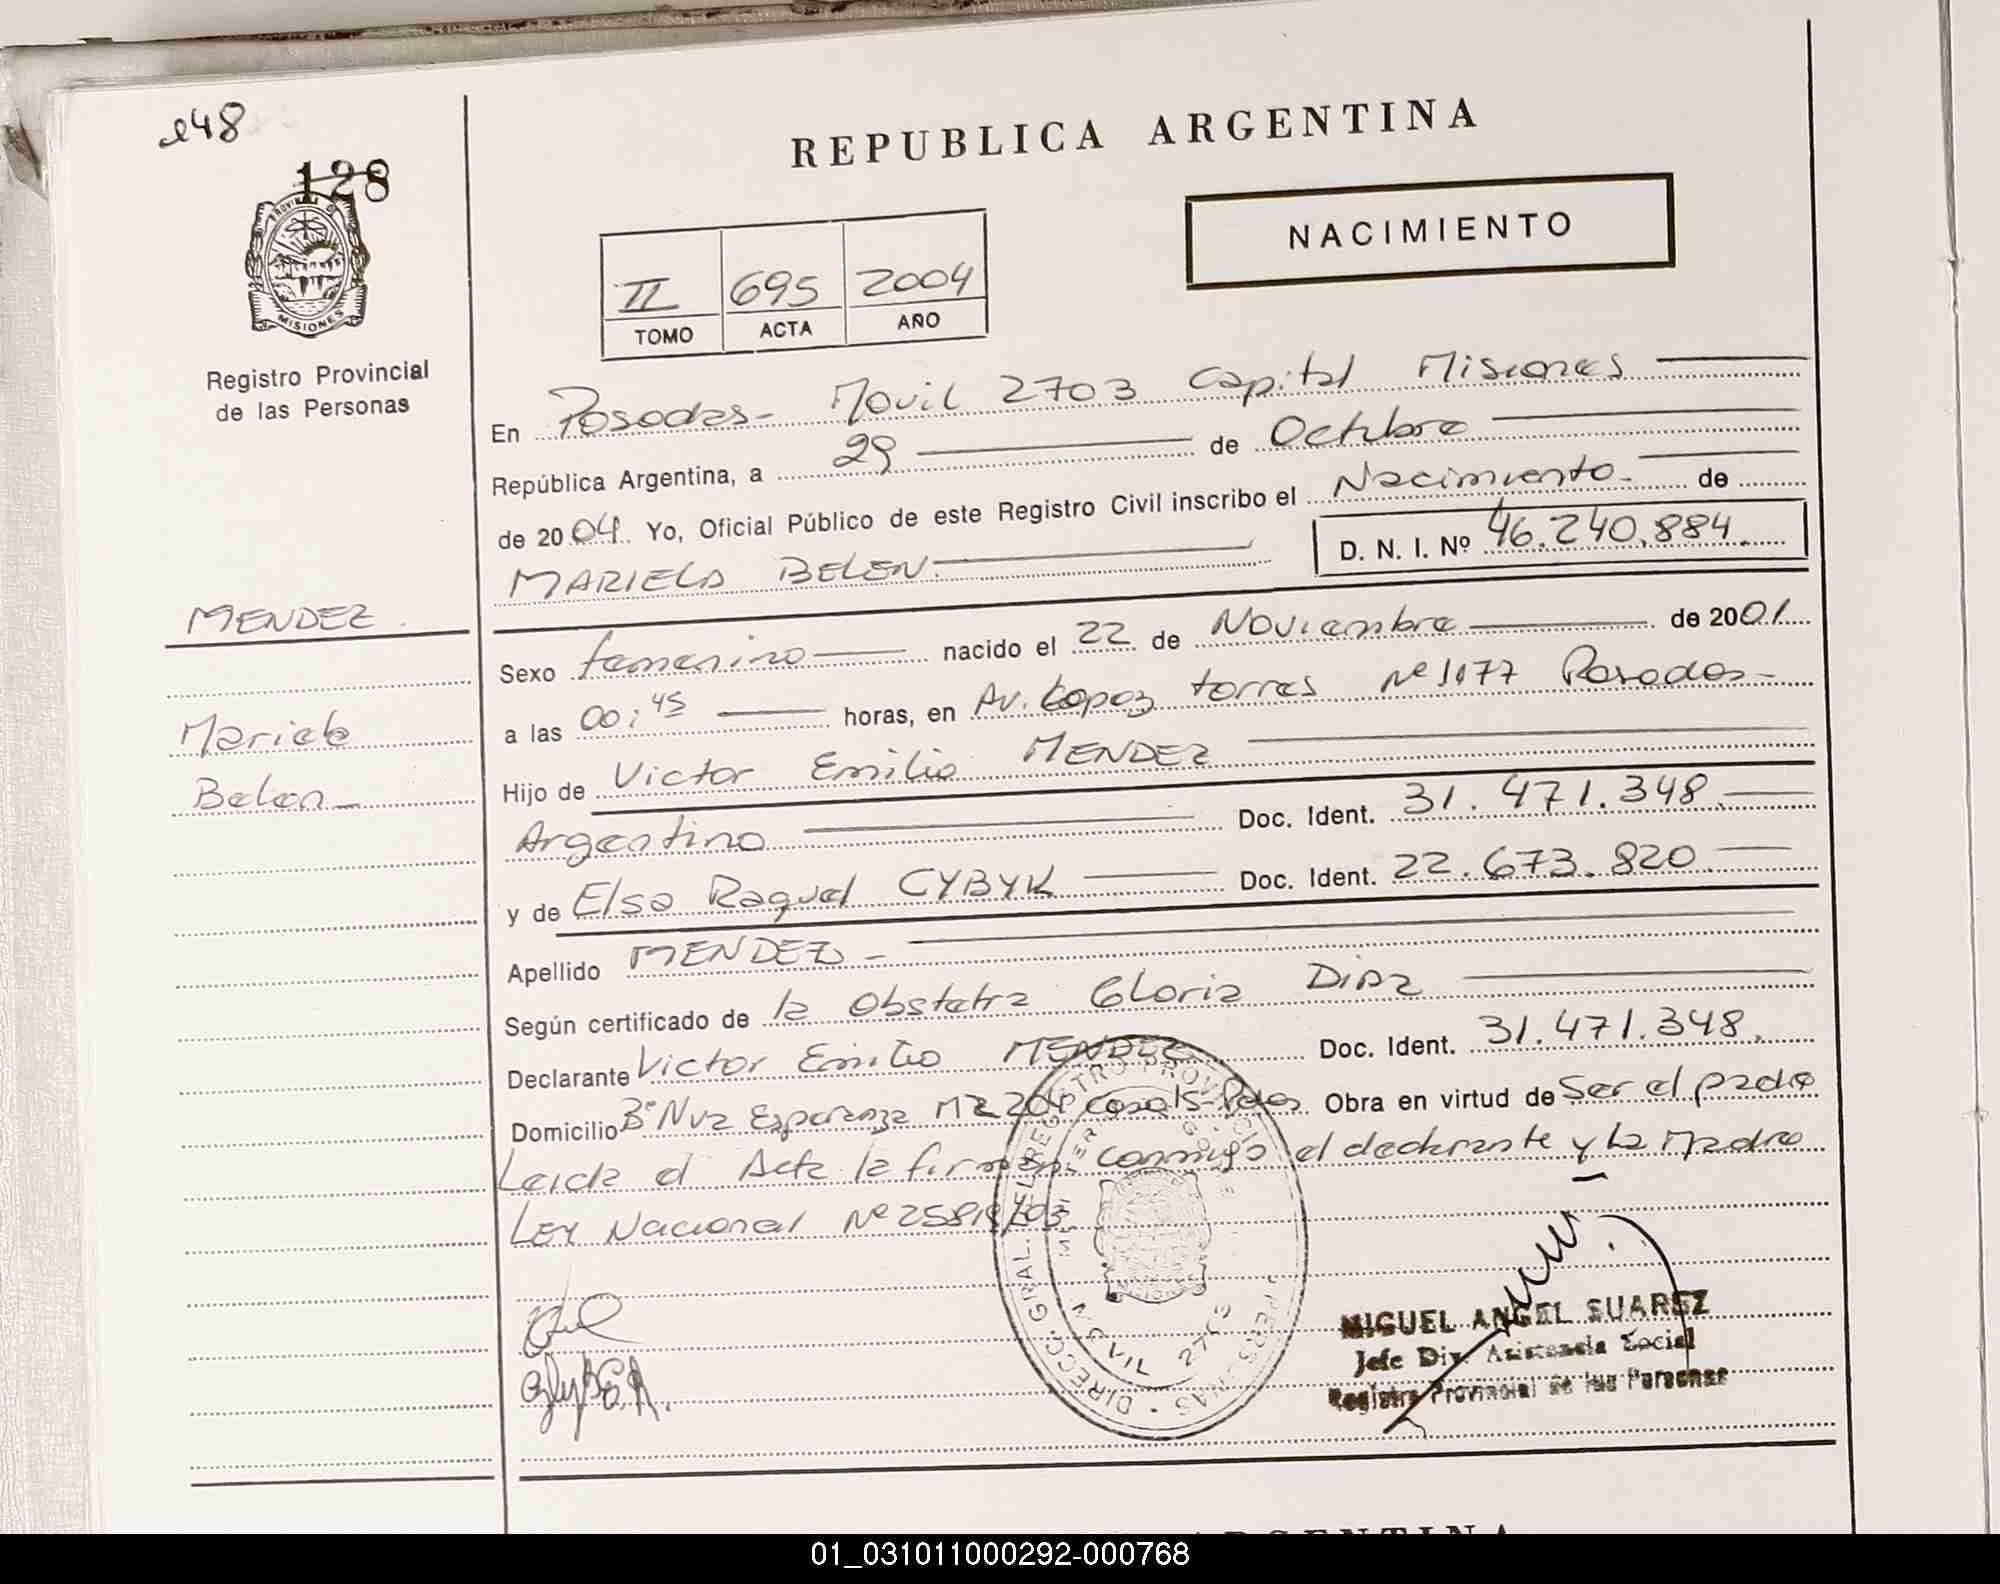 e48
128
PROVINCIA DE
MISIONES
Registro Provincial
de las Personas
MENDEZ
Mariela
Belen
REPUBLICA ARGENTINA
NACIMIENTO
II 695 2004
TOMO ACTA AÑO
En Posadas- Movil 2703 Capital Misiones
República Argentina, a 29 de Octubre
de 2004. Yo, Oficial Público de este Registro Civil inscribo el Nacimiento de
MARIELA BELEN. D. N. I. Nº 46.240.884.
Sexo femenino nacido el 22 de Noviembre de 2001
a las 00:45 horas, en Av. Lopez torres Nº 1177 Posadas-
Hijo de Victor Emilio MENDEZ
Argentino Doc. Ident. 31.471.348.
y de Elsa Raquel CYBYK Doc. Ident. 22.673.820.
Apellido MENDEZ -
Según certificado de la Obstetra Gloria DIAZ
Declarante Victor Emilio MENDEZ Doc. Ident. 31.471.348.
Domicilio Bº Nva Esperanza MZ 204 Casa 15- Pdas Obra en virtud de Ser el padre
Leida el Acta la firman conmigo el declarante y la Madre
LEY Nacional Nº 25819/03
DIRECC. GRAL. DEL REGISTRO PROVINCIAL PERSONAS
CIVIL 2703
MIGUEL ANGEL SUAREZ
Jefe Div. Asistencia Social
Registro Provincial de las Personas
01_031011000292-000768